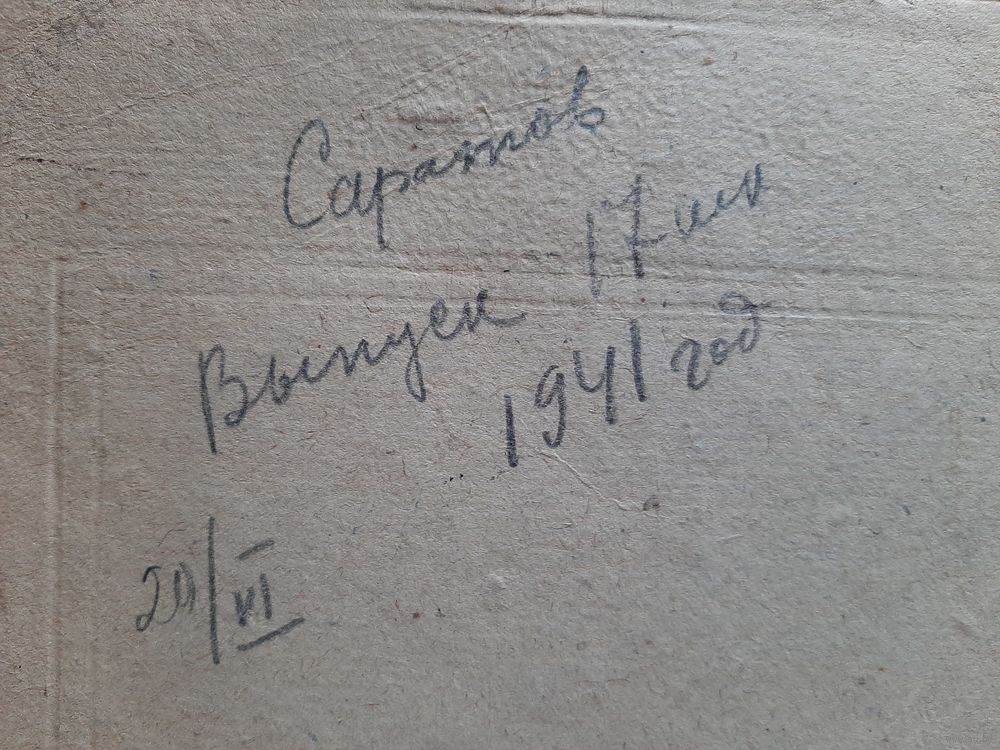 Саратов
Выпуск 17 шк
1941 год
20/VI